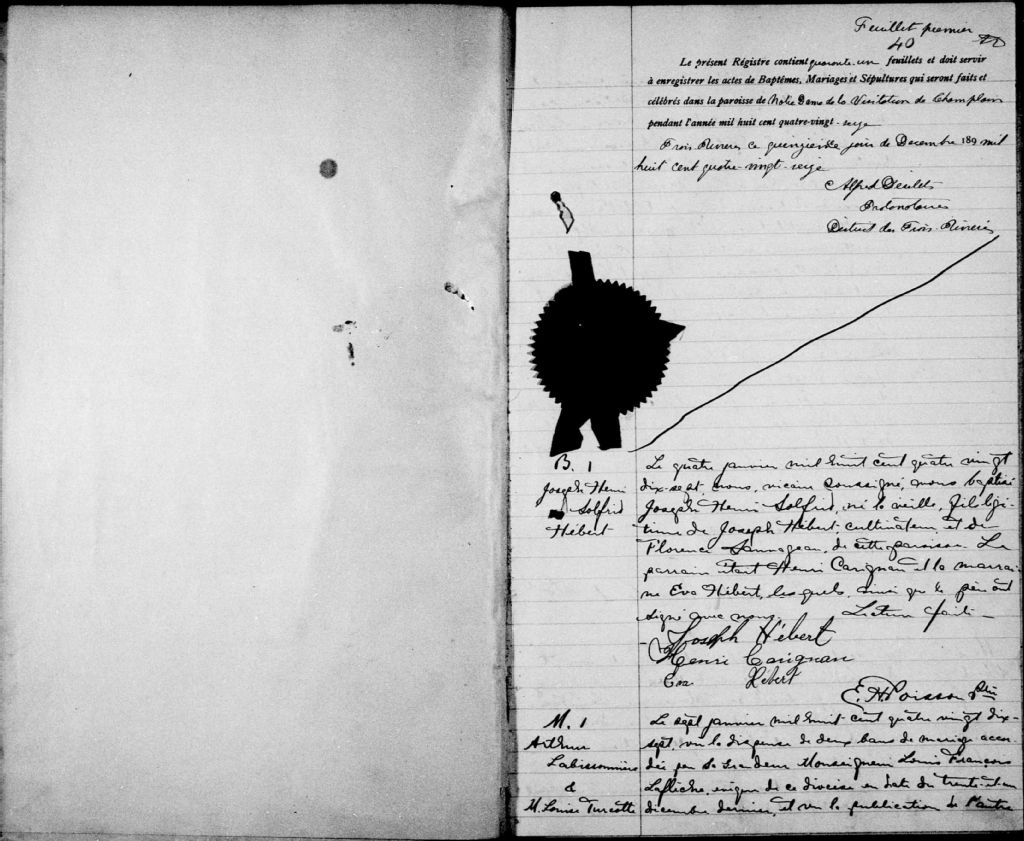 Feuillet premier
40
Le présent Régistre contient quarante-un feuillets et doit servir
à enregistrer les actes de Baptêmes, Mariages et Sépultures qui seront faits et
célébrés dans la paroisse de Notre Dame de la Visitation de Champlain
pendant l'année mil huit cent quatre-vingt-seize
Trois Rivières ce quinzième jour de Decembre 189 mil
huit cent quatre-vingt-seize
Alfred Desilets
Protonotaire
District des Trois-Rivières
B. 1
Joseph Henri
Solfrid
Hébert
Le quatre janvier mil huit cent quatre vingt
dix-sept, nous, vicaire soussigné, avons baptisé
Joseph Henri Solfrid, né la veille, fils légi-
time de Joseph Hébert cultivateur et de
Florence Sauvageau, de cette paroisse. Le
parrain était Henri Carignan et la marrai-
ne Eva Hébert, lesquels, ainsi que le père ont
signé avec nous. Lecture faite
Joseph Hébert
Henri Carignan
Eva Hébert
E. H. Poisson Ptre
M. 1
Arthur
Labissonnière
&
M. Louise Turcotte
Le sept janvier mil huit cent quatre vingt dix-
sept, vu la dispense de deux bans de mariage accor-
dée par Sa Grandeur Monseigneur Louis François
Laflèche, évêque de ce diocèse en date du trente-et-un
décembre dernier, et vu la publication de l'autre